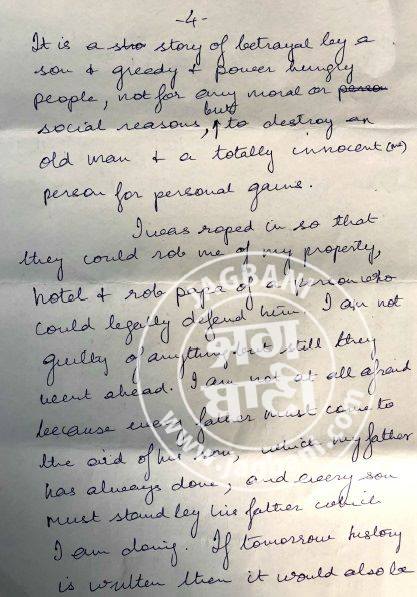 -4-
It is a sto story of betrayal by a
son & greedy & power hungry
people, not for any moral or perso
social reasons, but to destroy an
old man & a totally innocent (me)
person for personal gains.
I was roped in so that
they could rob me of my property,
hotel & rob papa of a person who
could legally defend him. I am not
guilty of anything but still they
went ahead. I am not at all afraid
because every father must come to
the aid of his son, which my father
has always done, and every son
must stand by his father which
I am doing. If tomorrow history
is written then it would also be
JAGBANI
जग
बाणी
www.